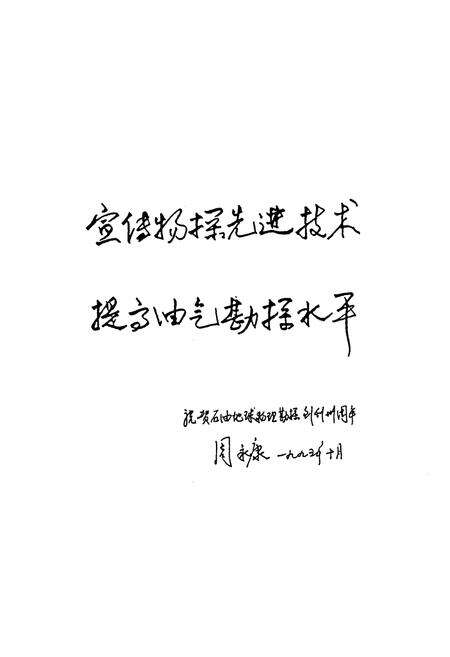 宣传物探先进技术
提高油气勘探水平
祝贺石油地球物理勘探创刊卅周年
周永康 一九九三年十月